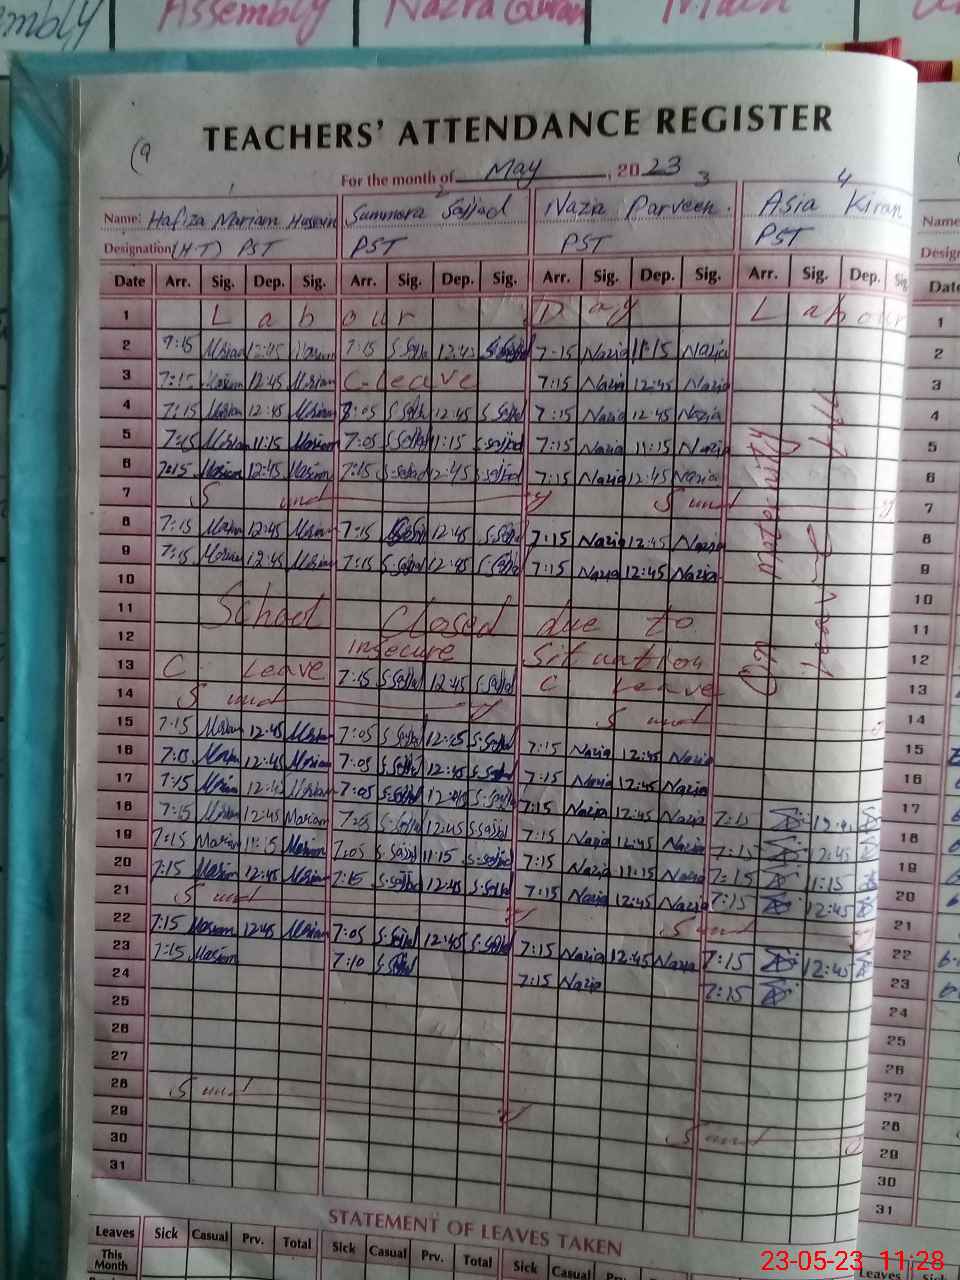 Assembly Nazra Quran Math
TEACHERS' ATTENDANCE REGISTER
(9
For the month of May, 2023
1 2 3 4
Name: Hafiza Mariam Hussain Summera Sajjad Nazia Parveen. Asia Kiran Name
Designation (H.T) PST PST PST PST
Date Arr. Sig. Dep. Sig. Arr. Sig. Dep. Sig. Arr. Sig. Dep. Sig. Arr. Sig. Dep. Sig. Date
1 Labour Day Labour 1
2 7:15 Mariam 12:45 Mariam 7:15 S.Sajjad 12:45 S.Sajjad 7:15 Nazia 11:15 Nazia 2
3 7:15 Mariam 12:45 Mariam C-leave 7:15 Nazia 12:45 Nazia 3
4 7:15 Mariam 12:45 Mariam 8:05 S.Sajjad 12:45 S.Sajjad 7:15 Nazia 12:45 Nazia 4
5 7:15 Mariam 11:15 Mariam 7:05 S.Sajjad 11:15 S.Sajjad 7:15 Nazia 11:15 Nazia 5
6 7:15 Mariam 12:45 Mariam 7:15 S.Sajjad 12:45 S.Sajjad 7:15 Nazia 12:45 Nazia 6
7 Sunday Sunday 7
8 7:15 Mariam 12:45 Mariam 7:15 S.Sajjad 12:45 S.Sajjad 7:15 Nazia 12:45 Nazia 8
9 7:15 Mariam 12:45 Mariam 7:15 S.Sajjad 12:45 S.Sajjad 7:15 Nazia 12:45 Nazia 9
10 10
11 School Closed due to 11
12 insecure Situation 12
13 C. Leave 7:15 S.Sajjad 12:45 S.Sajjad C Leave 13
14 Sunday Sunday 14
15 7:15 Mariam 12:45 Mariam 7:05 S.Sajjad 12:45 S.Sajjad 7:15 Nazia 12:45 Nazia 15
16 7:15 Mariam 12:45 Mariam 7:05 S.Sajjad 12:45 S.Sajjad 7:15 Nazia 12:45 Nazia 16
17 7:15 Mariam 12:45 Mariam 7:05 S.Sajjad 12:45 S.Sajjad 7:15 Nazia 12:45 Nazia 7:15 17
18 7:15 Mariam 12:45 Mariam 7:05 S.Sajjad 12:45 S.Sajjad 7:15 Nazia 12:45 Nazia 7:15 12:45 18
19 7:15 Mariam 11:15 Mariam 7:05 S.Sajjad 11:15 S.Sajjad 7:15 Nazia 11:15 Nazia 7:15 11:15 19
20 7:15 Mariam 12:45 Mariam 7:15 S.Sajjad 12:45 S.Sajjad 7:15 Nazia 12:45 Nazia 7:15 12:45 20
21 Sunday Sunday 21
22 7:15 Mariam 12:45 Mariam 7:05 S.Sajjad 12:45 S.Sajjad 7:15 Nazia 12:45 Nazia 7:15 12:45 22
23 7:15 Mariam 7:10 S.Sajjad 7:15 Nazia 7:15 23
24 24
25 25
26 26
27 27
28 Sunday Sunday 28
29 29
30 30
31 31
STATEMENT OF LEAVES TAKEN
Leaves Sick Casual Prv. Total Sick Casual Prv. Total Sick Casual Prv. Total Leaves Sick
This Month
23-05-23 11:28